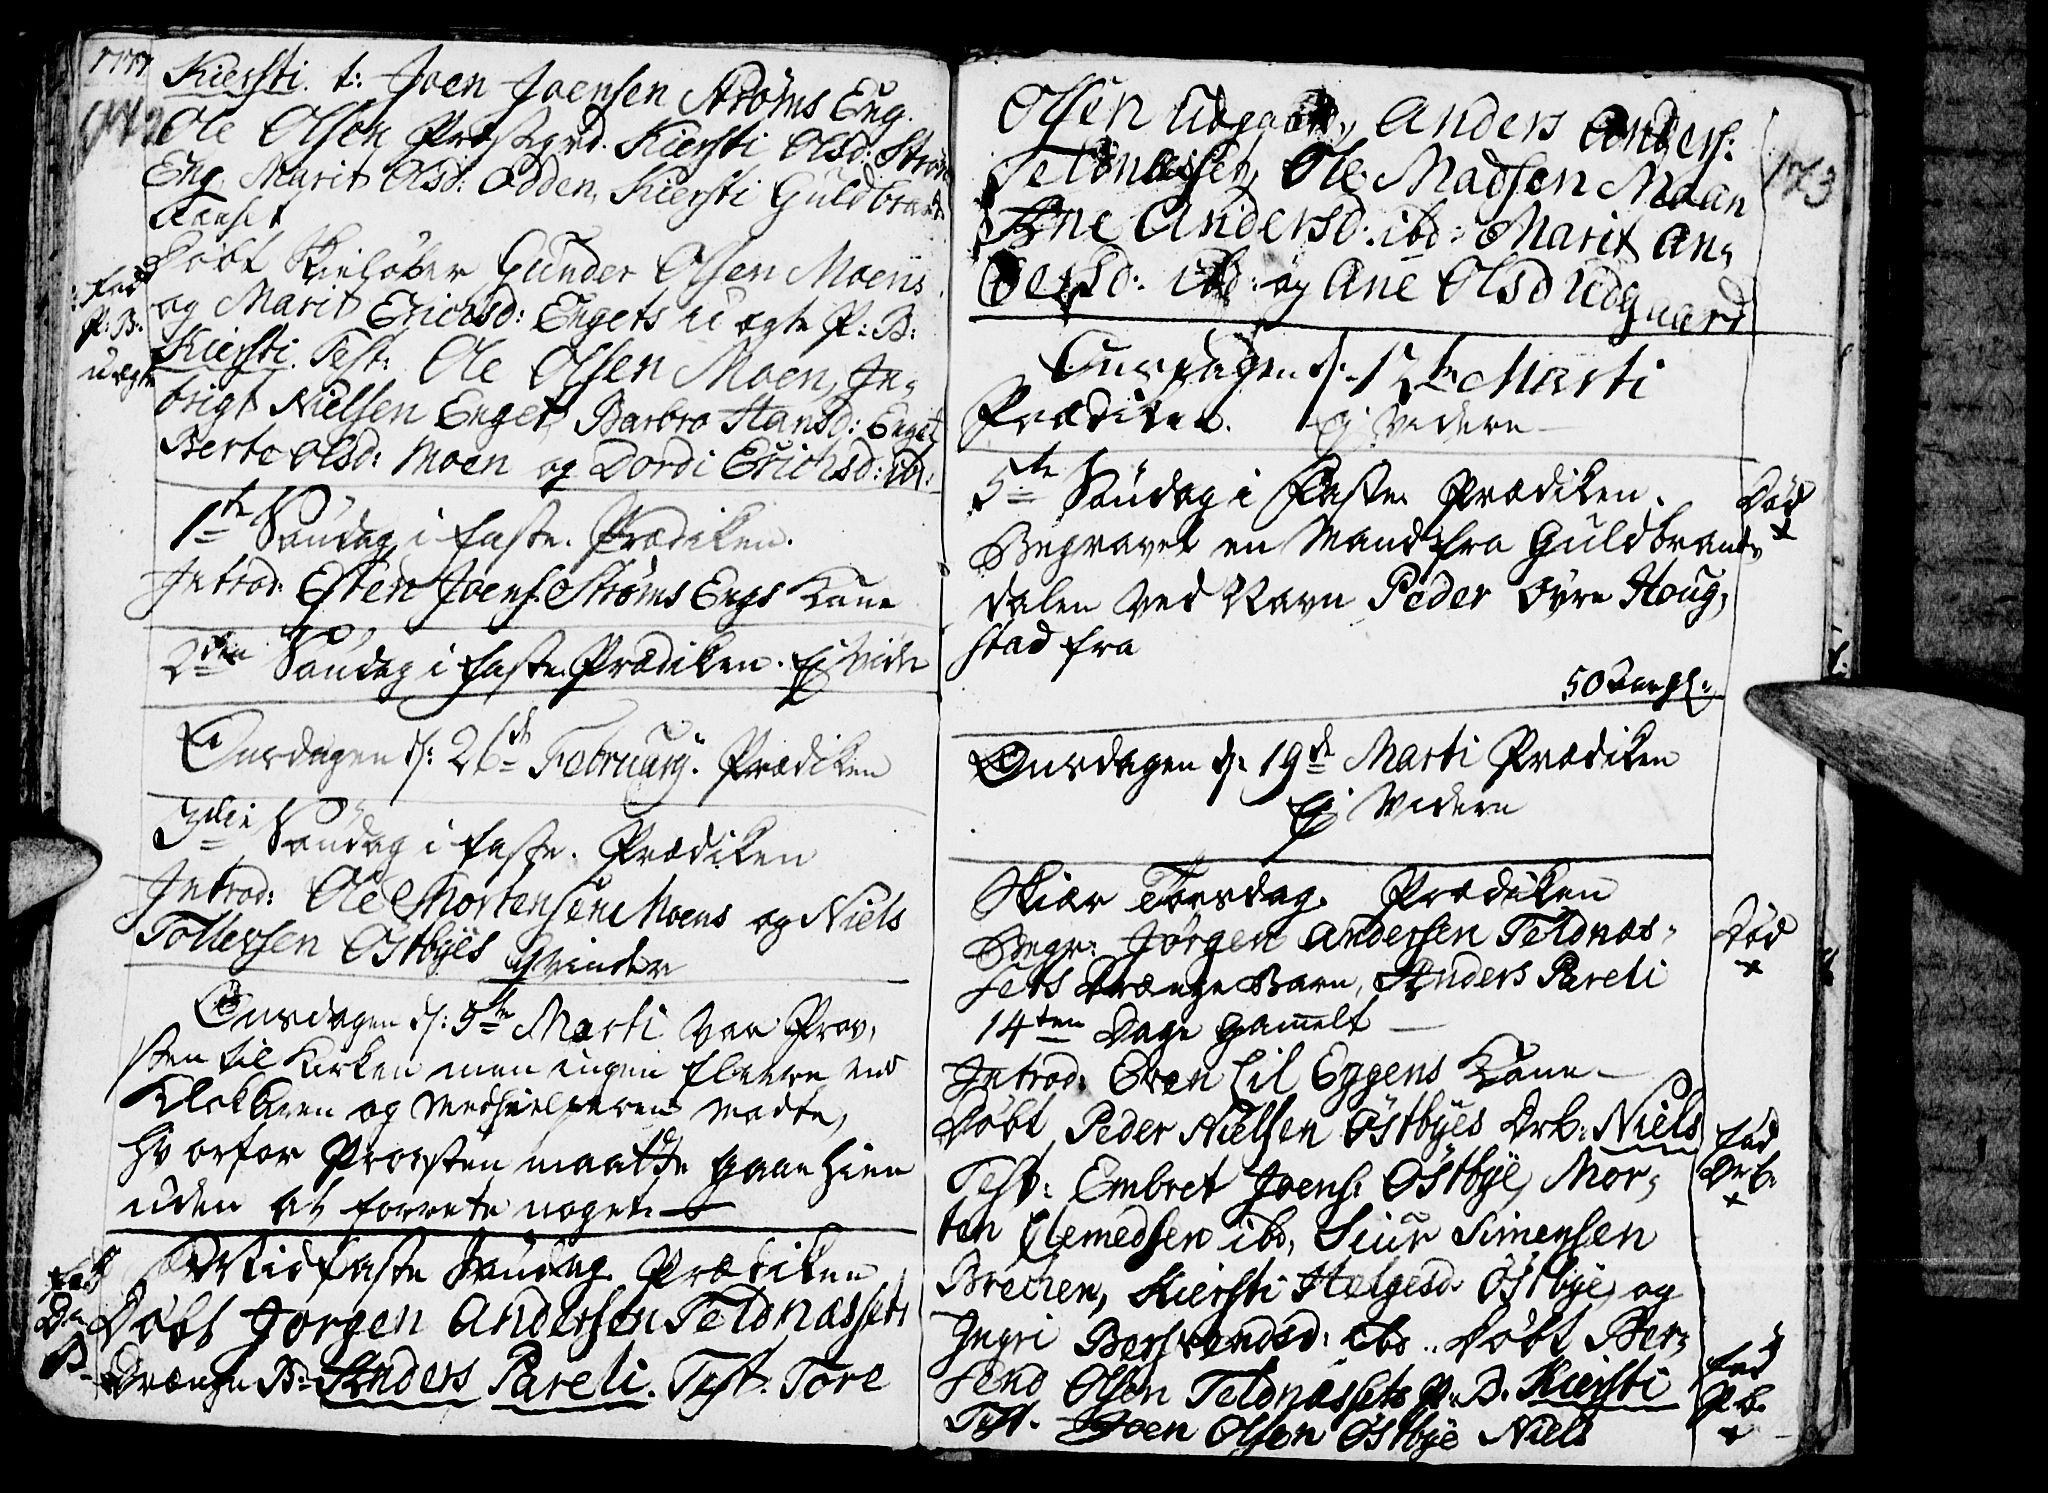 1777
172
Kiersti. t: Joen Joensen Strøms Eng.
Ole Olsen Præstgrd. Kiersti Olsd: Strøm
Eng Marit Olsd: Odden, Kiersti Guldbrands
Aanset
Døbt Skieløber Gunder Olsen Moens
og Marit Erichsd: Engets u ægte P: B:
Kiersti. Test: Ole Olsen Moen, In-
brigt Nielsen Enget Barbro Hansd: Enget
Berte Olsd: Moen og Dordi Erichsd: ibd:
fød
P: B:
uægte
1te Søndag i faste. Prædiken.
Introd: Esten Joens: Strøms Engs Kone
2den Søndag i faste. Prædiken. Ej vider
Onsdagen d: 26de February. Prædiken
3die Søndag i faste. Prædiken
Introd: Ole Mortensen Moens og Niels
Tollersen Østbyes Qvinder
Onsdagen d: 5te Marti var Prov-
sten til Kirken men ingen fleere end
Klokkeren og Medhielperen mødte,
hvorfor Provsten maatte gaae hien
uden at forrette noget.
Midfaste Søndag. Prædiken
Døbt Jørgen Andersen Teldnæssets
Drænge B: Anders Pareli. Test. Tore
fød
Dr
B
173
Olsen Udgaard, Anders Anders:
Teldnæsset, Ole Madsen Moan
Ane Andersd: ibd: Marit An-
dersd: ibd: og Ane Olsd Udgaard
Onsdagen d: 12te Marti
Prædiken. Ej videre
5te Søndag i Faste. Prædiken.
Begravet en Mand fra Guldbrands
dalen ved Navn Peder Øvre Houg-
stad fra
50 aar gl:
Død
+
Onsdagen d: 19de Marti Prædiken
Ej videre
Skiær Torsdag. Prædiken
Begr: Jørgen Andersen Teldnæs-
sets Drænge Barn, Anders Pareli
14ten Dage gamelt
Død
+
Introd: Even Lil Eggens Kone
Døbt Peder Nielsen Østbyes Drb: Niels
Test: Embret Joens: Østbye, Mor-
ten Clemedsen ibd, Siur Simensen
Brechen, Kiersti Helgesd: Østbye og
Ingri Bersvendsd: ibd.. Døbt Ber-
send Olsen Teldnæssets P: B: Kiersti
Test. Joen Olsen Østbye Niels
fød
Drb.
+
fød
Pb.
+